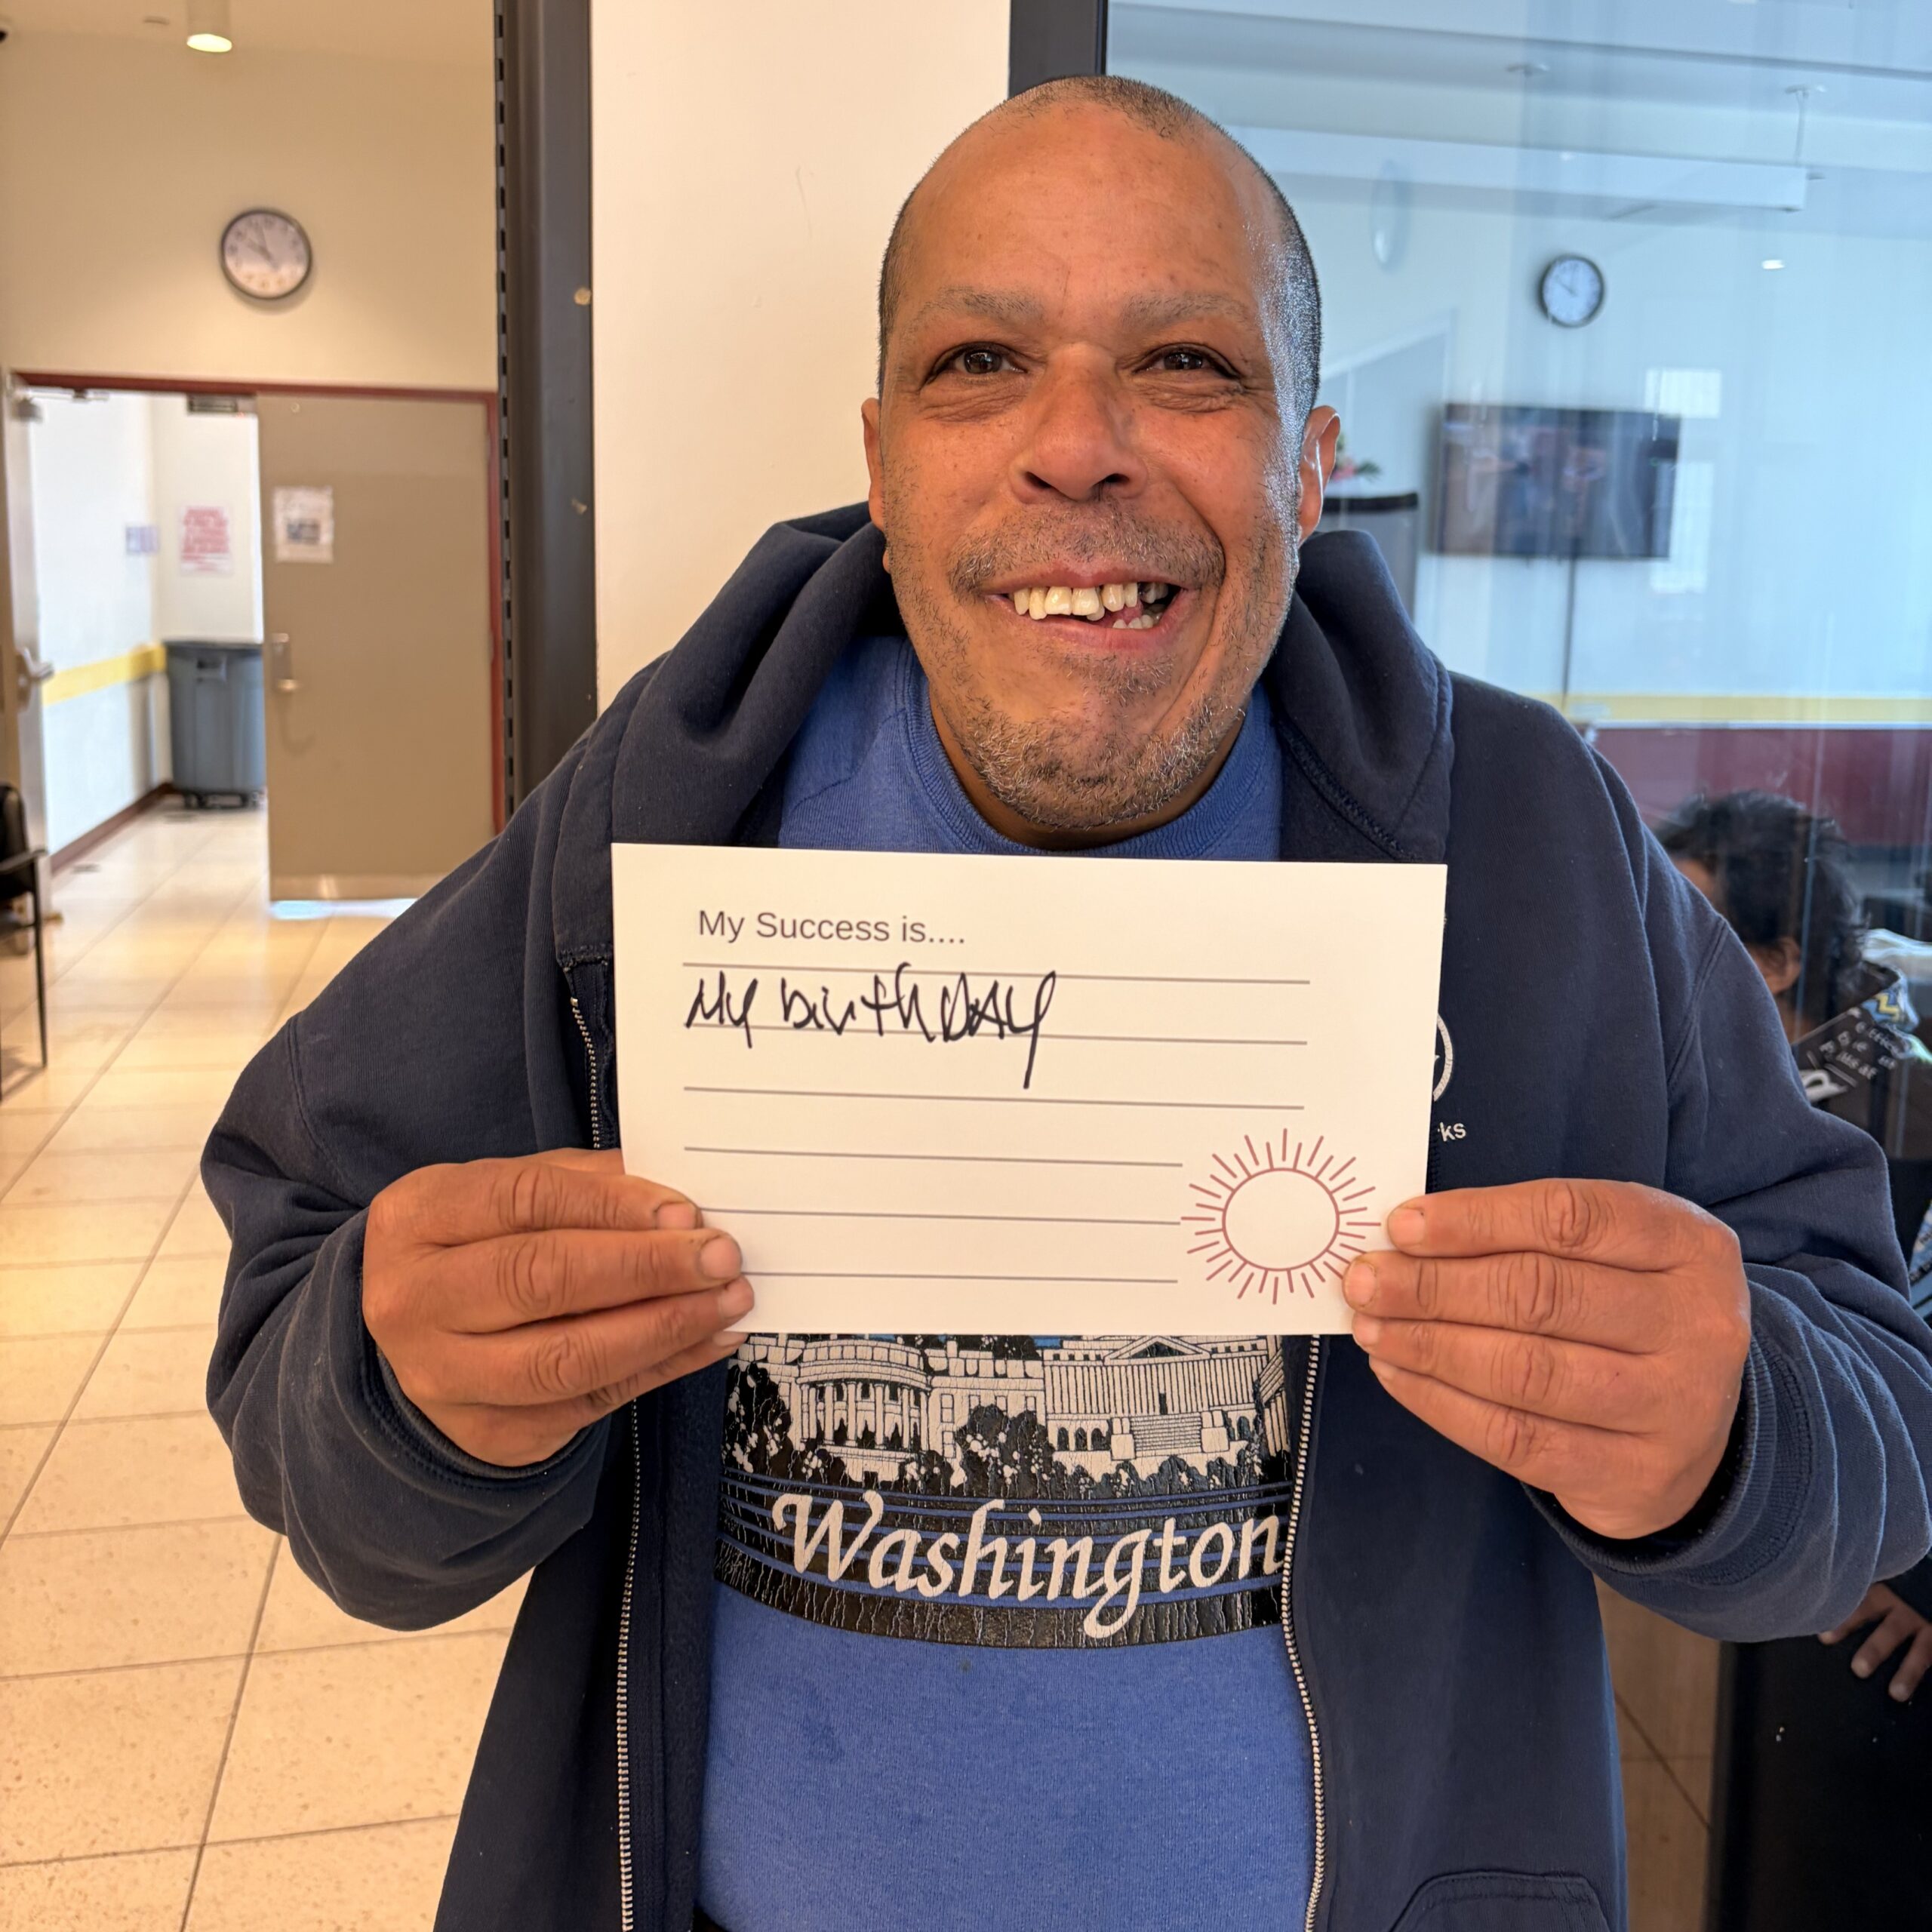 My Success is....
My birthDAy
ks
Washington